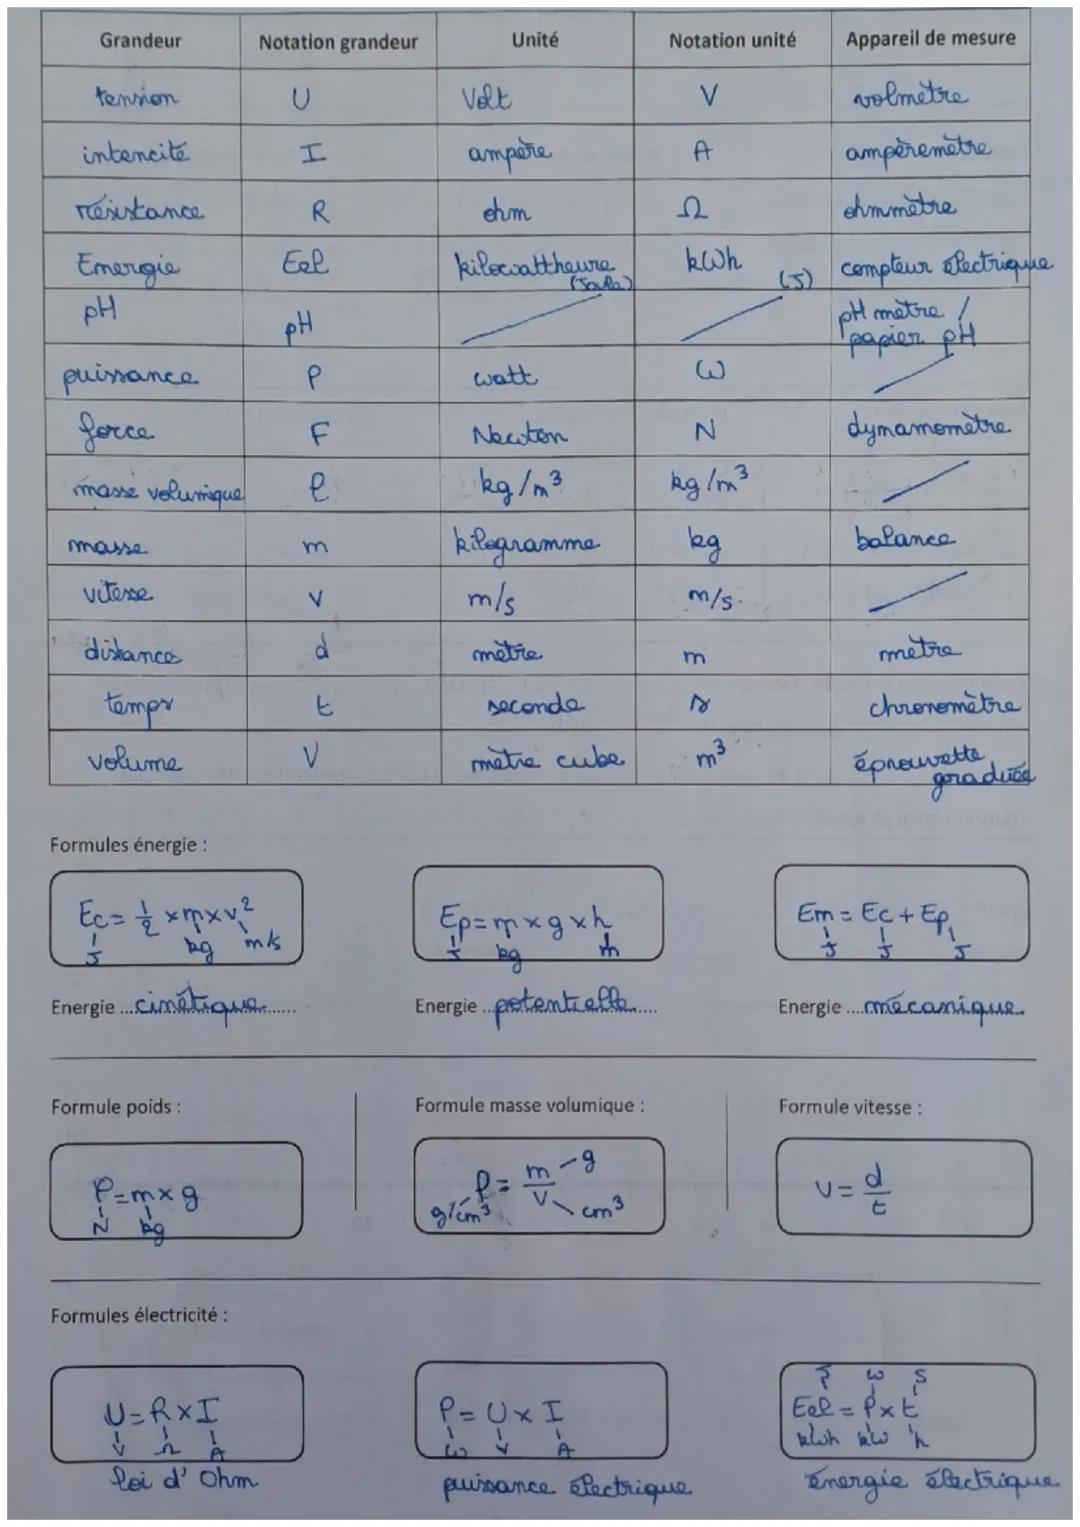 Grandeur Notation grandeur Unité Notation unité Appareil de mesure
tension U Volt V volmètre
intencité I ampère A ampèremètre
résistance R ohm Ω ohmmètre
Energie Eel kilowattheure (Joule) kWh (J) compteur électrique
pH pH pH mètre / papier pH
puissance P watt W
force F Newton N dynamomètre
masse volumique ρ kg/m³ kg/m³
masse m kilogramme kg balance
vitesse v m/s m/s.
distance d mètre m mètre
temps t seconde s chronomètre
volume V mètre cube m³ éprouvette graduée
Formules énergie :
Ec = 1/2 x m x v² Ep = m x g x h Em = Ec + Ep
J kg m/s J kg m J J J
Energie ...cinétique....... Energie ...potentielle..... Energie ....mécanique..
Formule poids : Formule masse volumique : Formule vitesse :
P = m x g ρ = m/V v = d/t
N kg g/cm³ g cm³
Formules électricité :
J W S
U = R x I P = U x I Eel = P x t
V Ω A W V A kWh kW h
loi d'Ohm puissance électrique énergie électrique